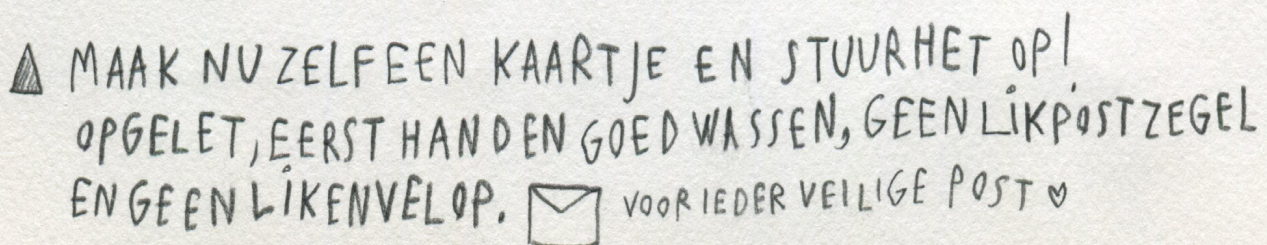 MAAK NU ZELF EEN KAARTJE EN STUUR HET OP!
OPGELET, EERST HANDEN GOED WASSEN, GEEN LIKPOSTZEGEL
EN GEEN LIKENVELOP. VOOR IEDER VEILIGE POST ♡